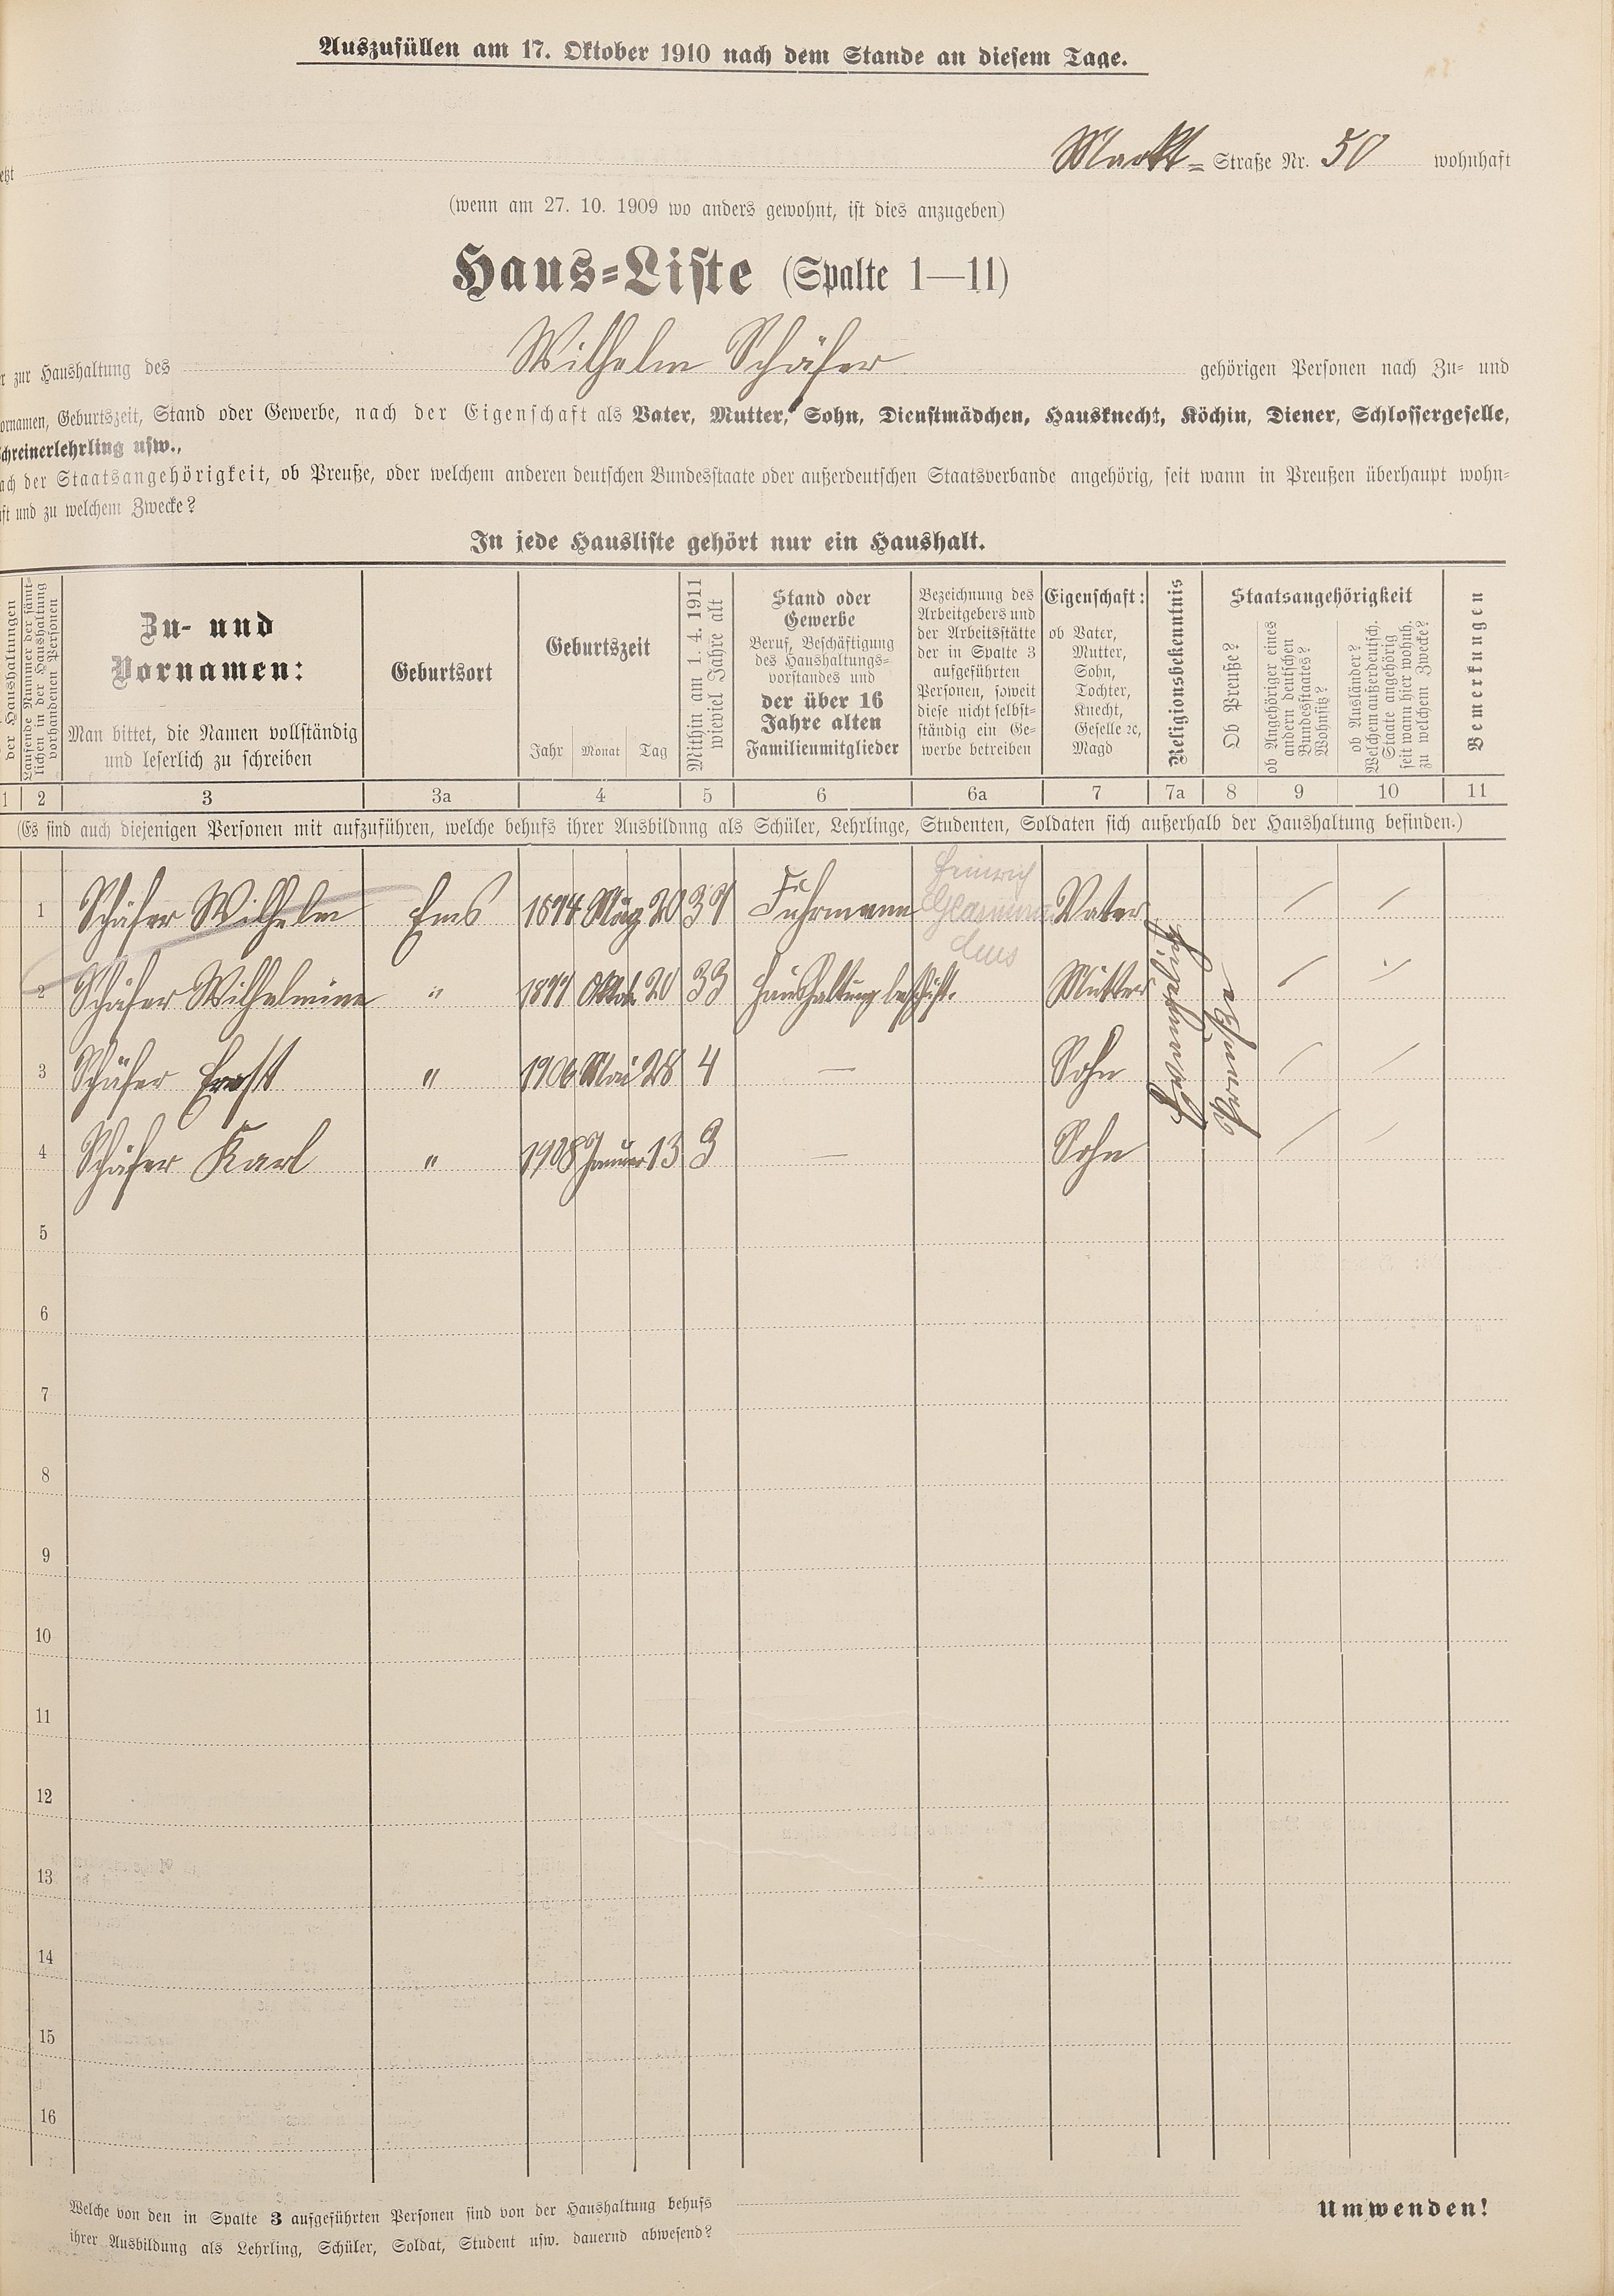 Auszufüllen am 17. Oktober 1910 nach dem Stande an diesem Tage.
Markt- Straße Nr. 50 wohnhaft
(wenn am 27. 10. 1909 wo anders gewohnt, ist dies anzugeben)
Haus-Liste (Spalte 1—11)
zur Haushaltung des Wilhelm Schäfer gehörigen Personen nach Zu- und
ornamen, Geburtszeit, Stand oder Gewerbe, nach der Eigenschaft als Vater, Mutter, Sohn, Dienstmädchen, Hausknecht, Köchin, Diener, Schlossergeselle,
chreinerlehrling usw.,
ach der Staatsangehörigkeit, ob Preuße, oder welchem anderen deutschen Bundesstaate oder außerdeutschen Staatsverbande angehörig, seit wann in Preußen überhaupt wohn-
ft und zu welchem Zwecke?
In jede Hausliste gehört nur ein Haushalt.
der Haushaltungen
Laufende Nummer der sämt-
lichen in der Haushaltung
vorhandenen Personen
Zu- und
Vornamen:
Man bittet, die Namen vollständig
und leserlich zu schreiben
Geburtsort
Geburtszeit
Jahr Monat Tag
Mithin am 1. 4. 1911
wieviel Jahre alt
Stand oder
Gewerbe
Beruf, Beschäftigung
des Haushaltungs-
vorstandes und
der über 16
Jahre alten
Familienmitglieder
Bezeichnung des
Arbeitgebers und
der Arbeitsstätte
der in Spalte 3
aufgeführten
Personen, soweit
diese nicht selbst-
ständig ein Ge-
werbe betreiben
Eigenschaft:
ob Vater,
Mutter,
Sohn,
Tochter,
Knecht,
Geselle ꝛc,
Magd
Religionsbekenntnis
Staatsangehörigkeit
Ob Preuße?
ob Angehöriger eines
andern deutschen
Bundesstaates?
Wohnsitz?
ob Ausländer?
Welchem außerdeutsch.
Staate angehörig
seit wann hier wohnh.
zu welchem Zwecke?
Bemerkungen
1 2 3 3a 4 5 6 6a 7 7a 8 9 10 11
(Es sind auch diejenigen Personen mit aufzuführen, welche behufs ihrer Ausbildung als Schüler, Lehrlinge, Studenten, Soldaten sich außerhalb der Haushaltung befinden.)
Heinrich
1 Schäfer Wilhelm Ems 1874 März 20 37 Fuhrmann Vater / /
Ems
2 Schäfer Wilhelmine " 1877 Oktob. 20 33 Haushaltung beschäft. Mutter / /
3 Schäfer Ernst " 1906 Mai 28 4 — Sohn / /
4 Schäfer Karl " 1908 Januar 13 3 — Sohn / /
Evangelisch
Preuße
5
6
7
8
9
10
11
12
13
14
15
16
Welche von den in Spalte 3 aufgeführten Personen sind von der Haushaltung behufs
ihrer Ausbildung als Lehrling, Schüler, Soldat, Student usw. dauernd abwesend?
Umwenden!